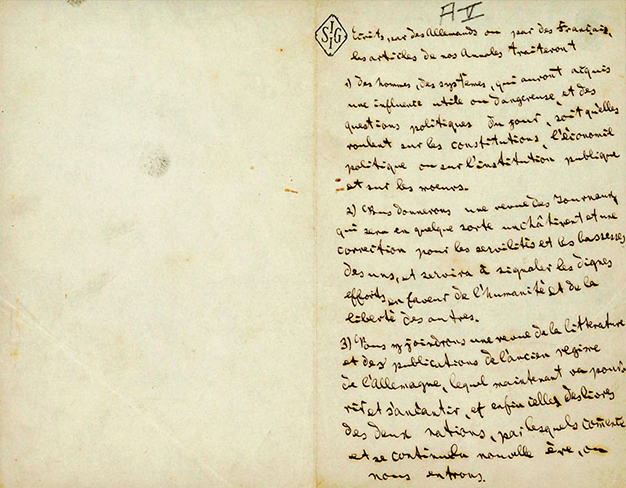 A V
IISG
Ecrits, par des Allemands ou par des Français,
les articles de nos Annales traiteront
1) des hommes, des systèmes, qui auront acquis
une influence utile ou dangereuse, et des
questions politiques du jour, soit qu'elles
roulent sur les constitutions, l'économie
politique ou sur l'institution publique
et sur les moeurs.
2) Nous donnerons une revue des Journaux
qui sera en quelque sorte un châtiment et une
correction pour les servilités et les bassesses
des uns, et servira à signaler les dignes
efforts en faveur de l'humanité et de la
liberté des autres.
3) Nous y joindrons une revue de la littérature
et des publications de l'ancien régime
de l'Allemagne, lequel maintenant va pour-
rir et s'anéantir, et enfin celles des livres
des deux nations, par lesquels commence
et se continue la nouvelle ère, où
nous entrons.